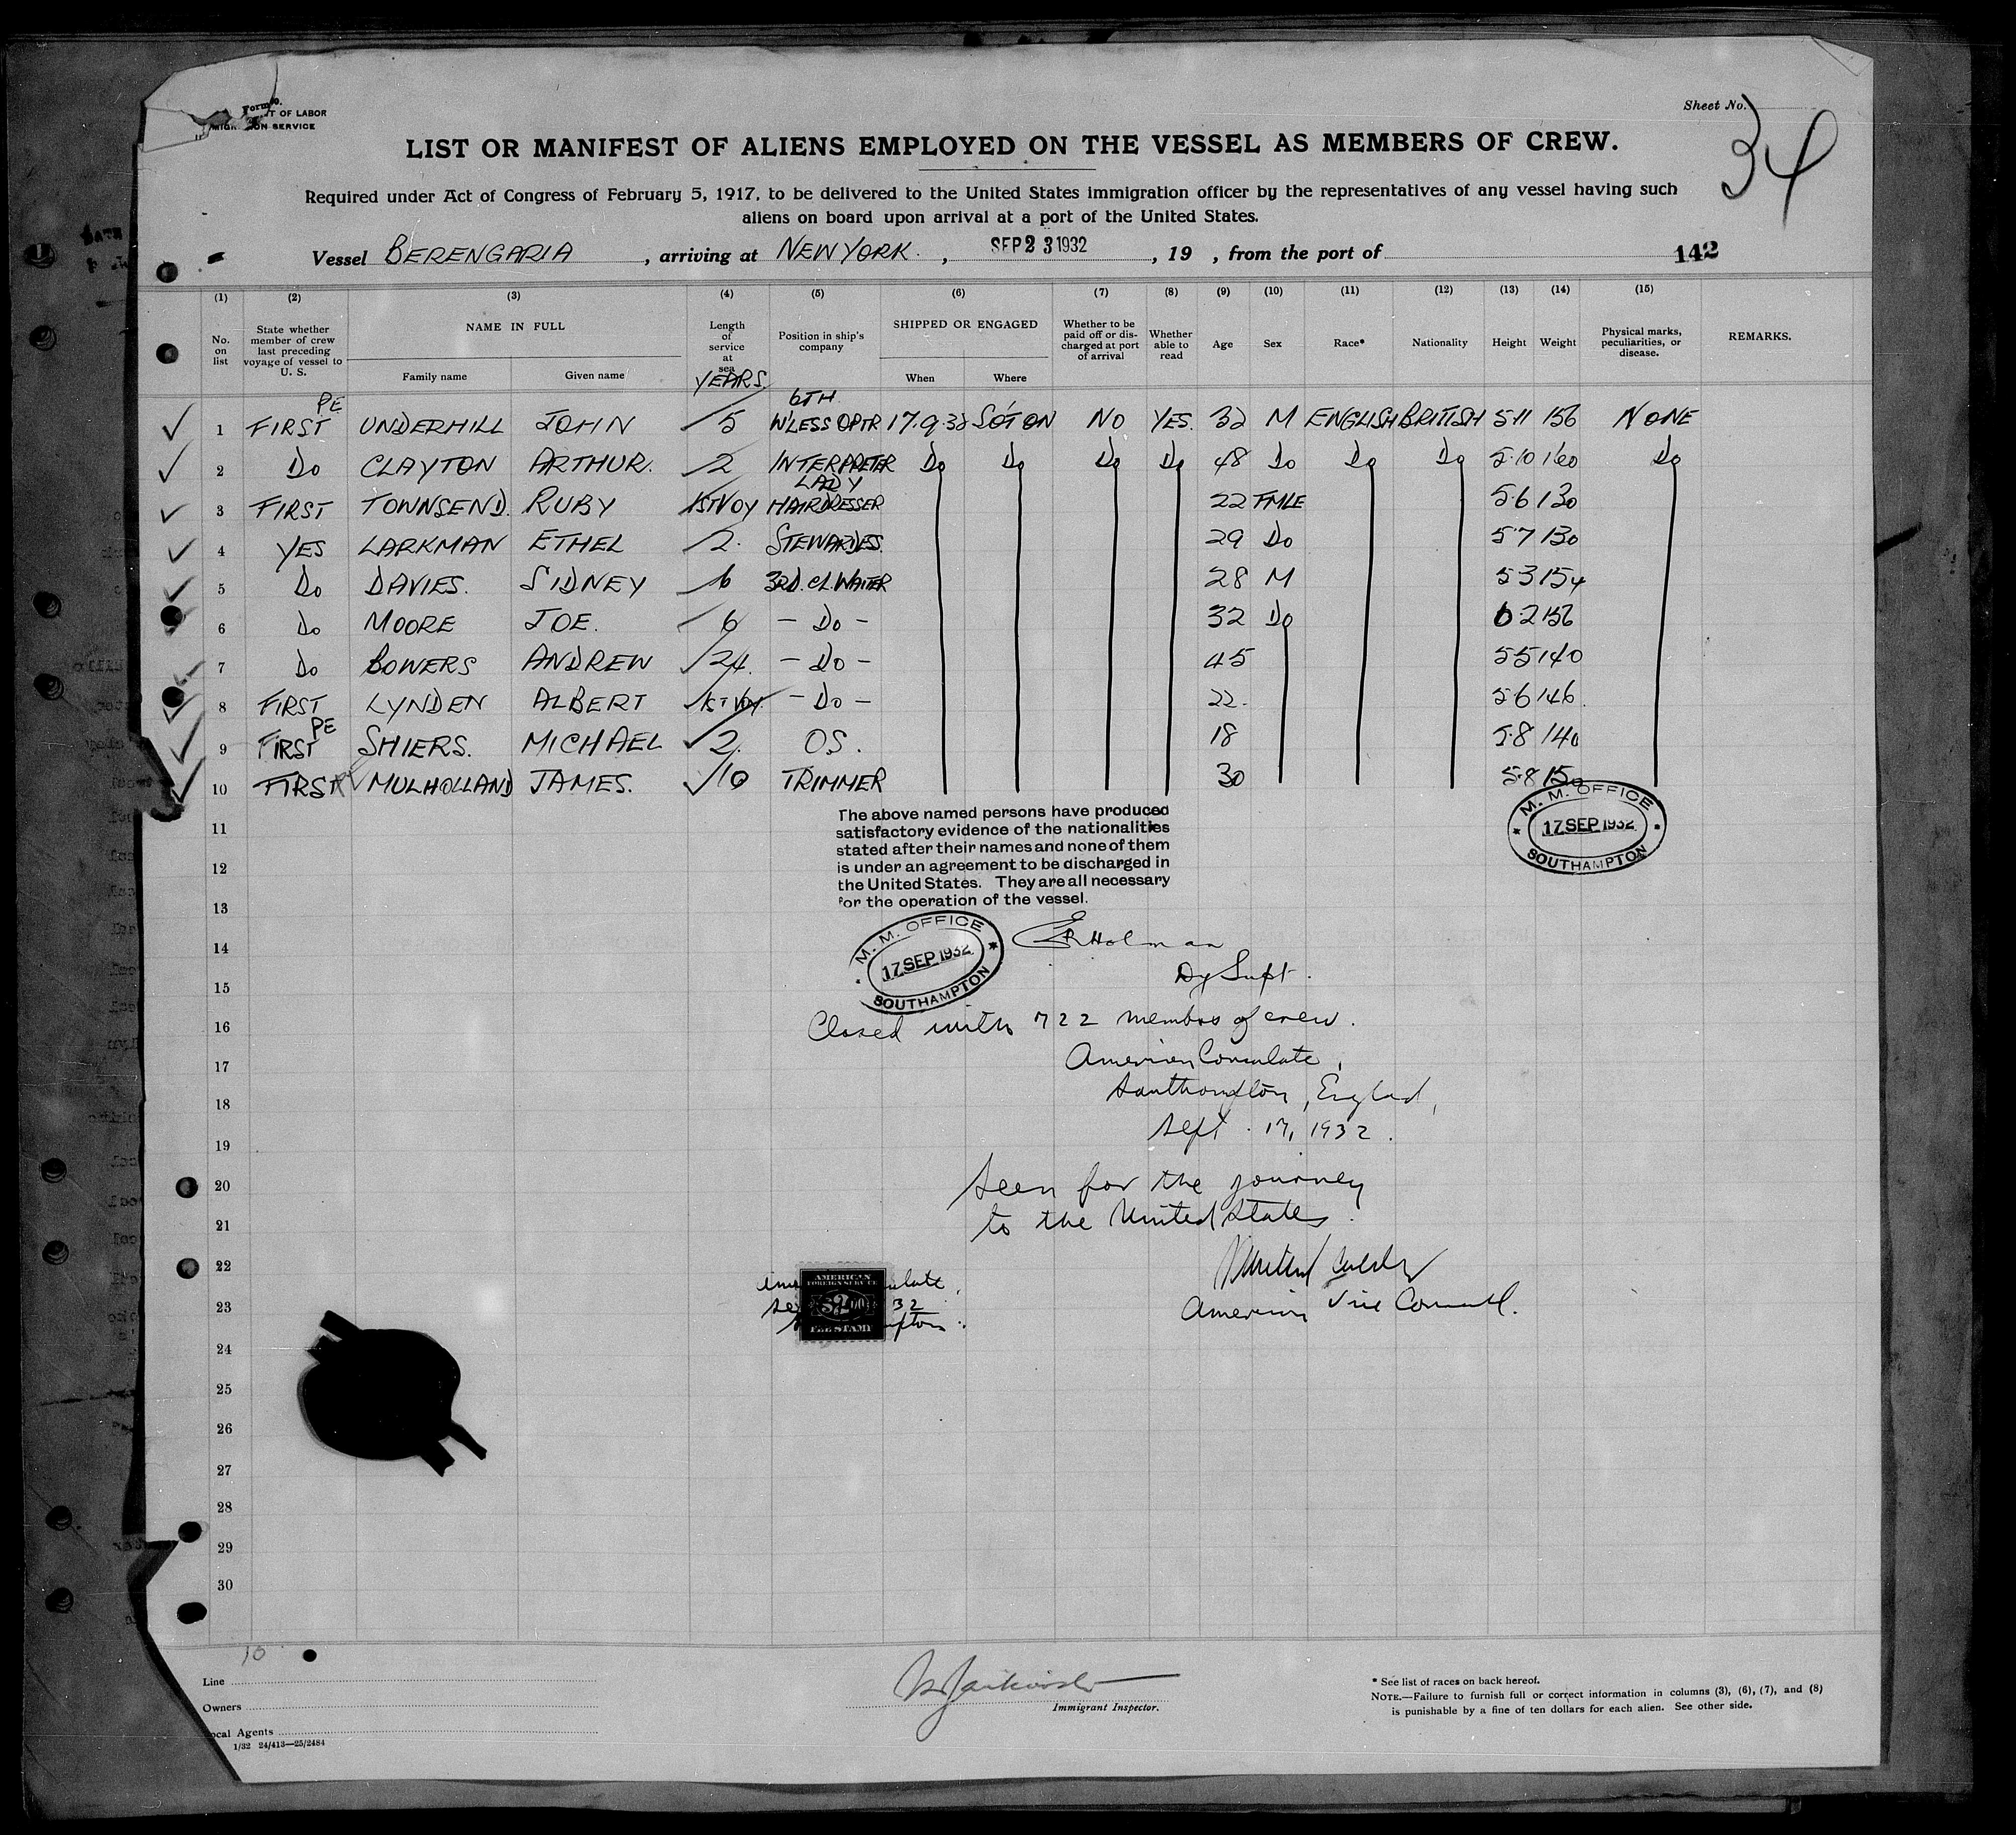 Form
T OF LABOR
ON SERVICE
Sheet No. 34
LIST OR MANIFEST OF ALIENS EMPLOYED ON THE VESSEL AS MEMBERS OF CREW.
Required under Act of Congress of February 5, 1917, to be delivered to the United States immigration officer by the representatives of any vessel having such
aliens on board upon arrival at a port of the United States.
Vessel BERENGARIA , arriving at NEW YORK. , SEP 23 1932 , 19 , from the port of 142
(1) (2) (3) (4) (5) (6) (7) (8) (9) (10) (11) (12) (13) (14) (15)
No. on list State whether member of crew last preceding voyage of vessel to U. S. NAME IN FULL Family name Given name Length of service at sea YEARS. Position in ship's company SHIPPED OR ENGAGED When Where Whether to be paid off or discharged at port of arrival Whether able to read Age Sex Race* Nationality Height Weight Physical marks, peculiarities, or disease. REMARKS.
PE 6TH
1 FIRST UNDERHILL JOHN 5 W'LESS OPTR 17.9.32 SO'TON NO YES. 32 M ENGLISH BRITISH 5·11 156 NONE
2 DO CLAYTON ARTHUR. 2 INTERPRETER DO DO DO DO 48 DO DO DO 5·10 160 DO
LADY
3 FIRST TOWNSEND. RUBY 1STVOY HAIRDRESSER 22 FMLE 5·6 130
4 YES LARKMAN ETHEL 2. STEWARDES. 29 DO 5·7 130
5 DO DAVIES. SIDNEY 6 3RD. CL. WAITER 28 M 5·3 154
6 DO MOORE JOE. 6 - DO - 32 DO 6·2 156
7 DO BOWERS ANDREW 24. - DO - 45 5·5 140
8 FIRST LYNDEN ALBERT 1ST VOY. - DO - 22. 5·6 146.
PE
9 FIRST SHIERS. MICHAEL 2. O.S. 18 5·8 140
10 FIRST MULHOLLAND JAMES. 10 TRIMMER 30 5·8 150
11
The above named persons have produced
satisfactory evidence of the nationalities
stated after their names and none of them
is under an agreement to be discharged in
the United States. They are all necessary
for the operation of the vessel.
M. M. OFFICE
17 SEP 1932
SOUTHAMPTON
12
13
M. M. OFFICE
17 SEP 1932
SOUTHAMPTON
14 Holman
15 Dy Supt.
16 Closed with 722 members of crew.
17 American Consulate,
18 Southampton, England,
19 Sept. 17, 1932.
20 Seen for the journey
21 to the United States.
22
23 American Vice Consul.
AMERICAN
FOREIGN SERVICE
$2.00
FEE STAMP
24
25
26
27
28
29
30
10
Line
Owners
Local Agents
1/32 24/413—25/2484
Immigrant Inspector.
* See list of races on back hereof.
NOTE.—Failure to furnish full or correct information in columns (3), (6), (7), and (8)
is punishable by a fine of ten dollars for each alien. See other side.